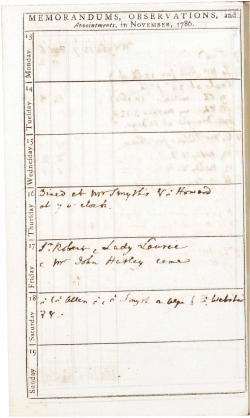 MEMORANDUMS, OBSERVATIONS, and
Appointments, in NOVEMBER, 1786.
13
Monday
14
Tuesday
15
Wednesday
16
Thursday
Dined at Mr Smyth's
at 7 o clock.
17
Friday
Sr Robert Lady
Mr John came
18
Saturday
Allen Smyth Webster
19
Sunday